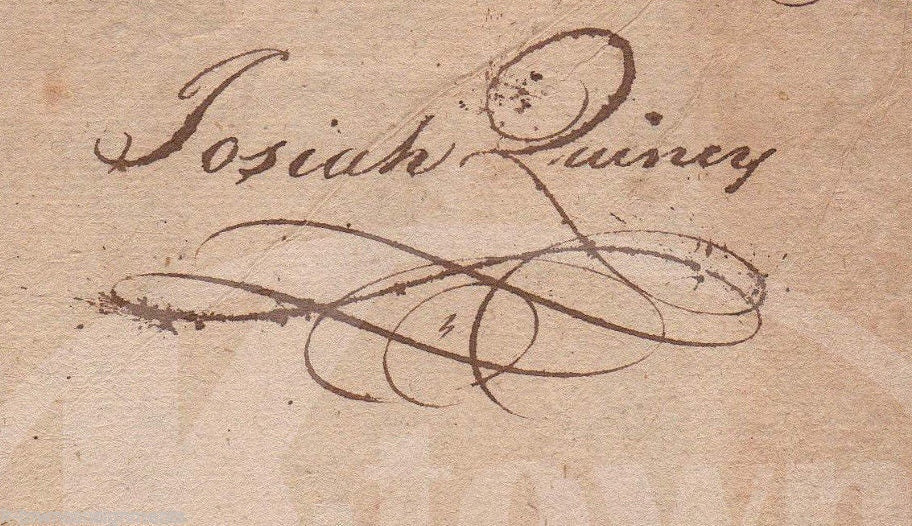 Josiah Quincy